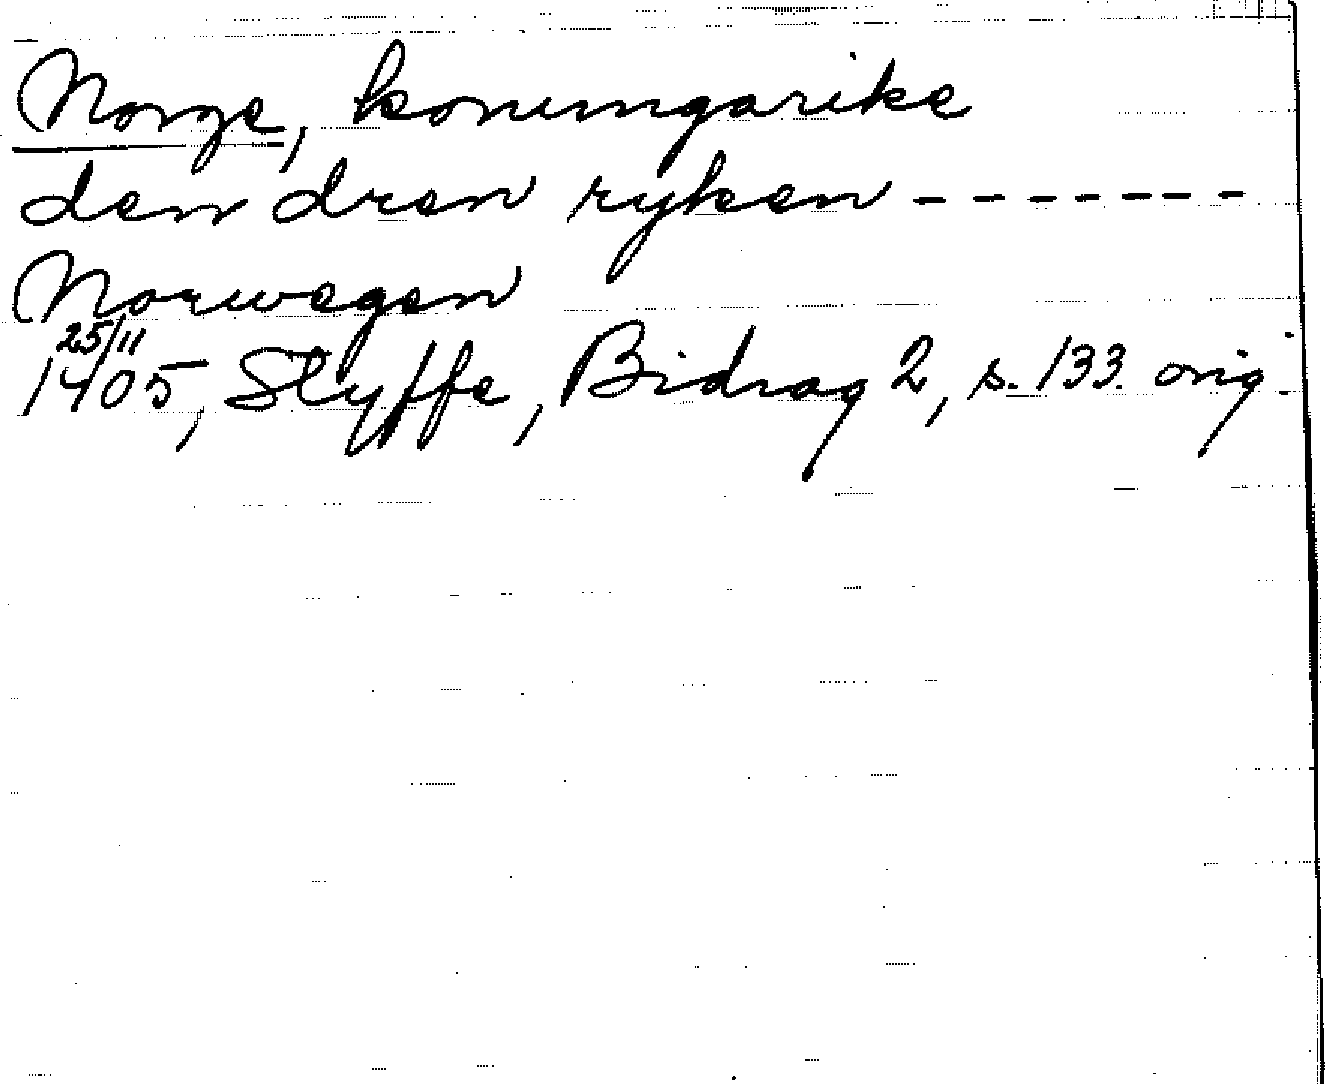 Norge, konungarike
den dren ryken - - - - - - -
Norwegen
25/11
1405, Styffe, Bidrag 2, s. 133. orig.